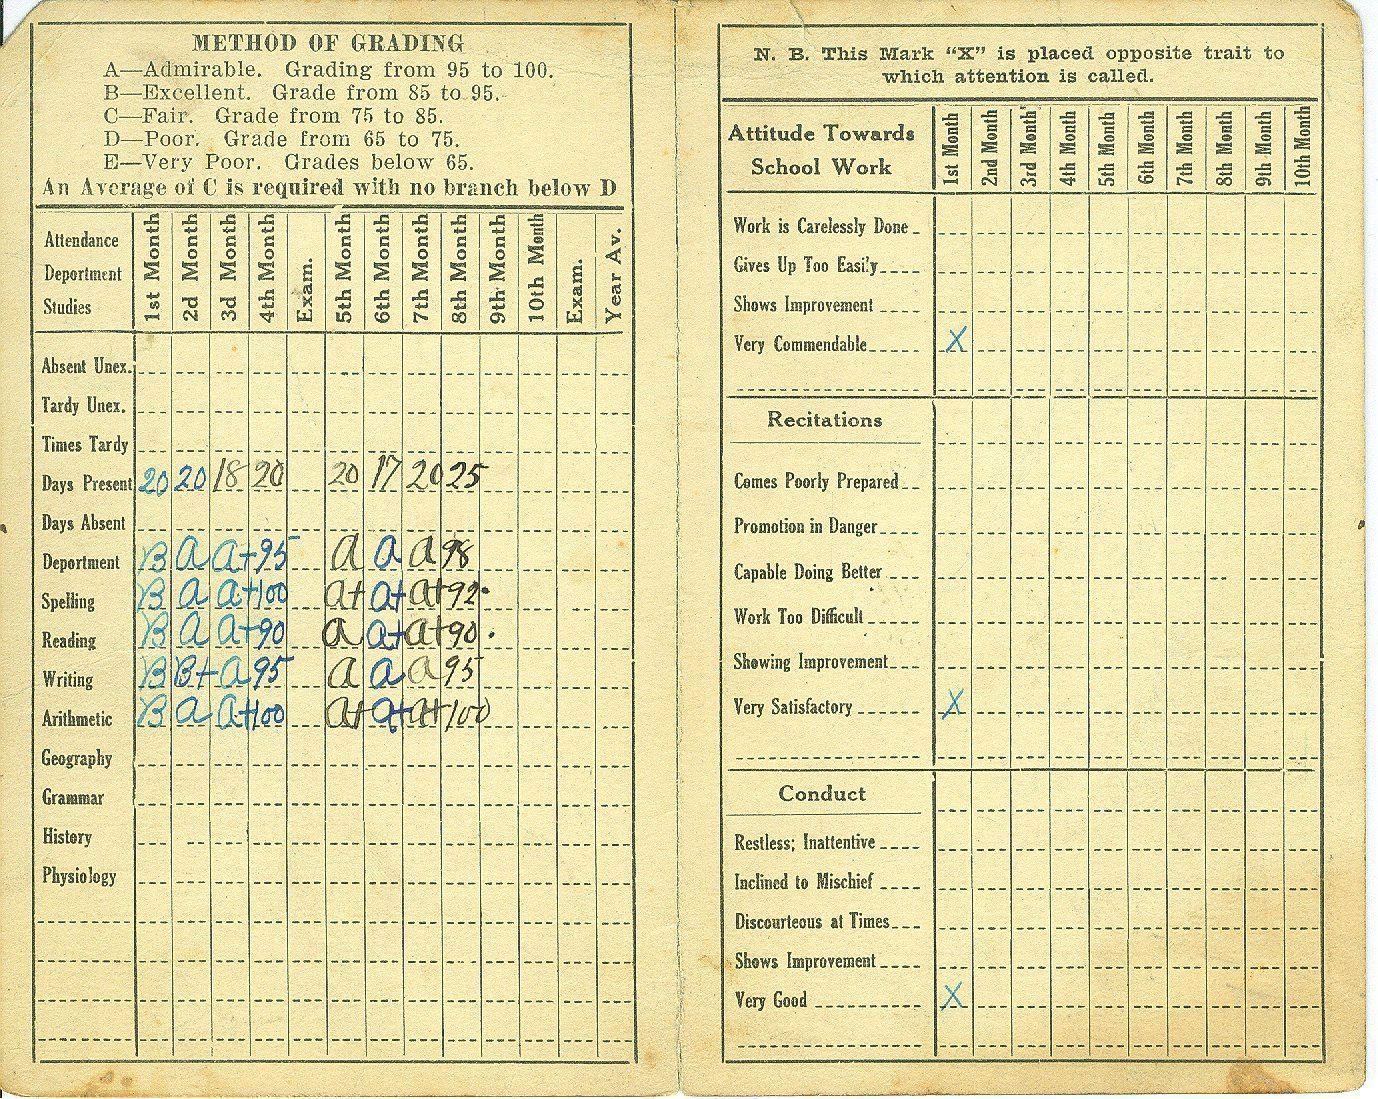 METHOD OF GRADING
A—Admirable. Grading from 95 to 100.
B—Excellent. Grade from 85 to 95.
C—Fair. Grade from 75 to 85.
D—Poor. Grade from 65 to 75.
E—Very Poor. Grades below 65.
An Average of C is required with no branch below D
Attendance
Deportment
Studies
1st Month 2d Month 3d Month 4th Month Exam. 5th Month 6th Month 7th Month 8th Month 9th Month 10th Month Exam. Year Av.
Absent Unex.
Tardy Unex.
Times Tardy
Days Present 20 20 18 20 20 17 20 25
Days Absent
Deportment B a a+ 95 a a a 98
Spelling B a a+ 100 a+ a+ a+ 92.
Reading B a a+ 90 a a+ a+ 90.
Writing B B+ a 95 a a a 95
Arithmetic B a a+ 100 a+ a+ a+ 100
Geography
Grammar
History
Physiology
N. B. This Mark “X” is placed opposite trait to
which attention is called.
Attitude Towards
School Work
1st Month 2nd Month 3rd Month 4th Month 5th Month 6th Month 7th Month 8th Month 9th Month 10th Month
Work is Carelessly Done
Gives Up Too Easily
Shows Improvement
Very Commendable X
Recitations
Comes Poorly Prepared
Promotion in Danger
Capable Doing Better
Work Too Difficult
Showing Improvement
Very Satisfactory X
Conduct
Restless; Inattentive
Inclined to Mischief
Discourteous at Times
Shows Improvement
Very Good X